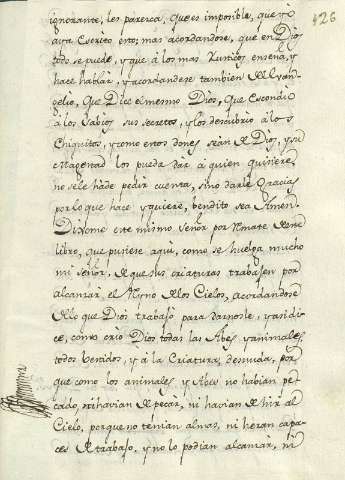 426
ignorante, les paresca, que es imposible, que yó
aya Escrito esto; mas acordandose, que en Dios
todo se puede, y que á los mas rusticos enseña, y
hace hablar, y acordandose tambien del Evan-
gelio, que Dice el mesmo Dios, que Escondió
á los sabios sus secretos, y los descubrió á los
Chiquitos, y como estos dones sean de Dios, y su
Magestad los pueda dar á quien quisiere
no sele háde pedir cuenta, sino darle Gracias
por lo que hace y quiere, bendito sea Amen.
Dixome este mismo señor por remate de este
libro, que pusiese aqui, como se huelga mucho
mi señor, de que sus criaturas trabajen por
alcansar el Reyno de los Cielos, acordandose
de lo que Dios trabajó para darnosle, y asi di-
ce, como crió Dios todas las Abes y animales,
todos vestidos, y á la Criatura, desnuda, por
que como los animales y Aves no habian pe-
cado, ni havian de pecar, ni havian de hir al
Cielo, porque no tenian almas, ni heran capa-
ces de trabajo, y no lo podian alcansar, ni